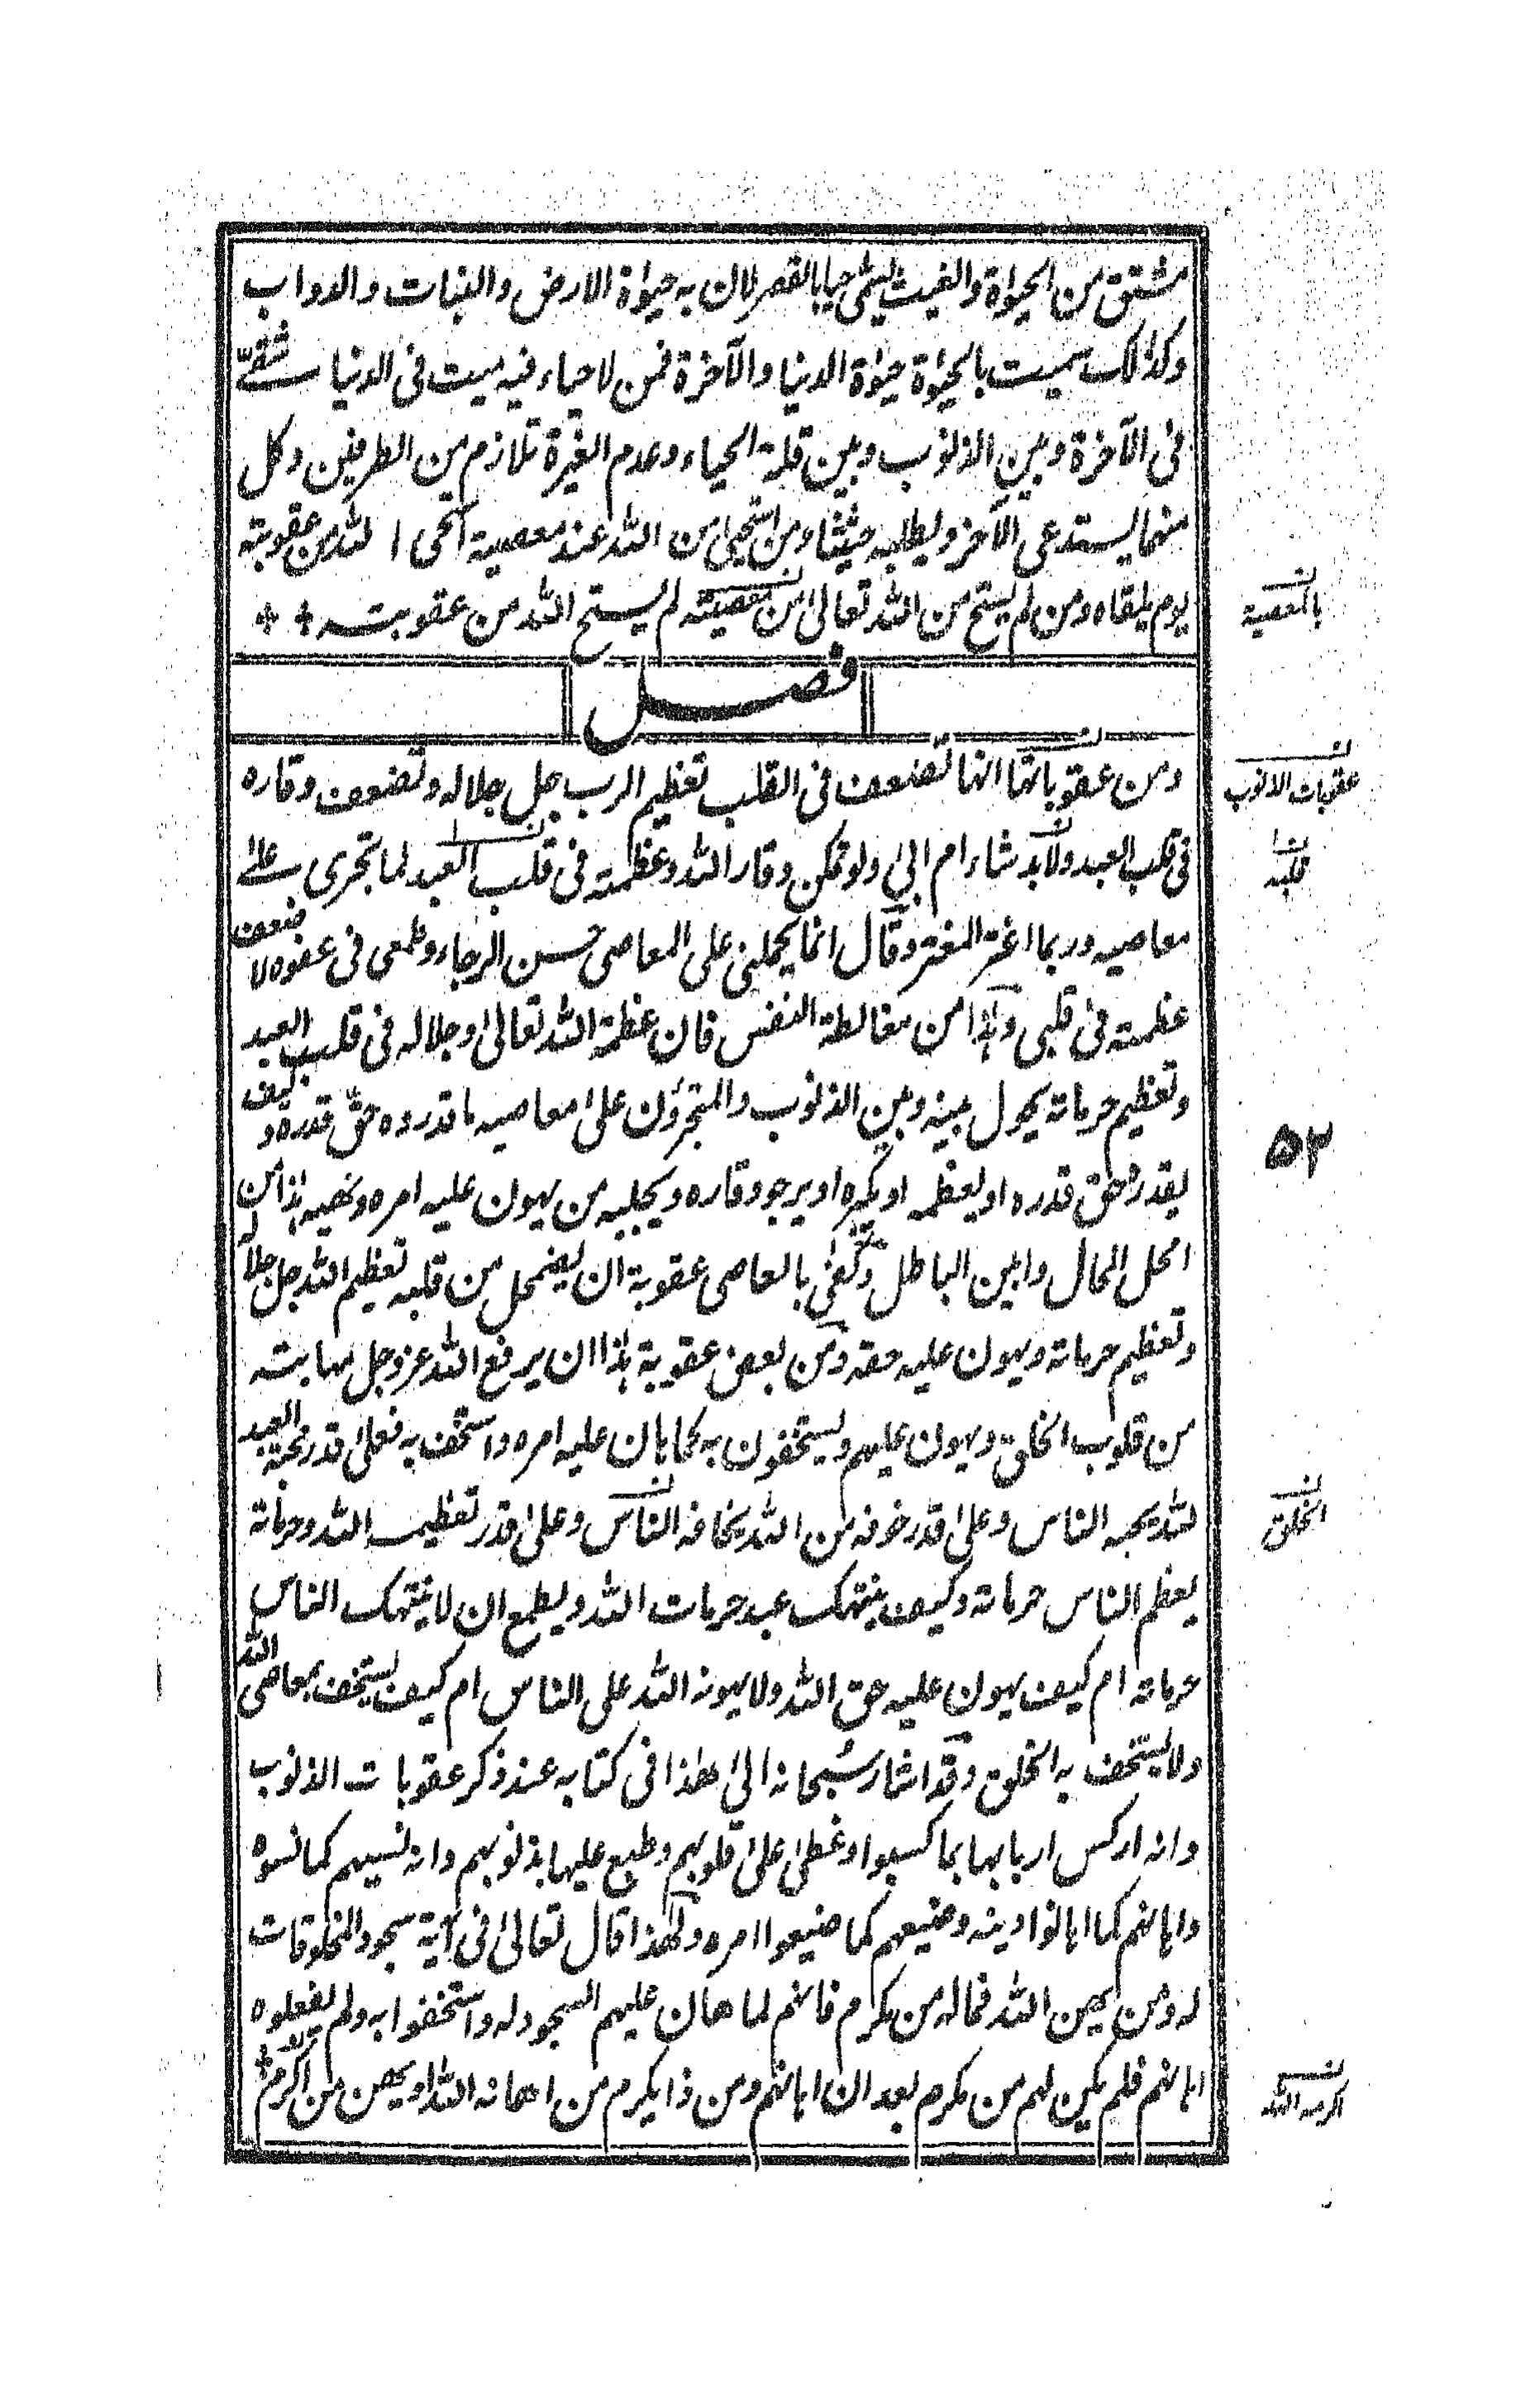 مشتق من الحيوة والغيث يسمى حيا بالقصر لان به حيوة الارض والنبات والدواب
وكذلك سميت بالحيوة حيوة الدنيا والآخرة فمن لا حياء فيه ميت فى الدنيا شقى
فى الآخرة وبين الذنوب وبين قلة الحياء وعدم الغيرة تلازم من الطرفين وكل
منهما يستدعى الآخر ويطلبه حثيثا ومن استحيى من الله عند معصيته استحى الله من عقوبته
يوم يلقاه ومن لم يستح من الله تعالى من معصيته لم يستح الله من عقوبته
بالمعصية
فصل
ومن عقوباتها انها تضعف فى القلب تعظيم الرب جل جلاله وتضعف وقاره
عقوبات الذنوب
فى قلب العبد ولابد شاء ام ابى ولو تمكن وقار الله وعظمته فى قلب العبد لما تجرى على
قلبه
معاصيه وربما اغتر المغتر وقال انما يحملنى على المعاصى حسن الرجاء وطمعى فى عفوه لا ضعف
عظمته فى قلبى وهذا من مغالطة النفس فان عظمة الله تعالى وجلاله فى قلب العبد
وتعظيم حرماته يحول بينه وبين الذنوب والمتجرؤن على معاصيه ما قدروه حق قدره وكيف
٥٣
يقدره حق قدره او يعظمه او يكبره او يرجو وقاره ويجله من يهون عليه امره ونهيه هذا من
امحل المحال وابين الباطل وكفى بالعاصى عقوبة ان يضمحل من قلبه تعظيم الله جل جلاله
وتعظيم حرماته ويهون عليه حقه ومن بعض عقوبة هذا ان يرفع الله عز وجل مهابته
من قلوب الخلق ويهون عليهم ويستخفون به كما هان عليه امره واستخف به فعلى قدر محبة العبد
لله يحبه الناس وعلى قدر خوفه من الله يخافه الناس وعلى قدر تعظيم الله وحرماته
الخلق
يعظم الناس حرماته وكيف ينتهك عبد حرمات الله ويطمع ان لا ينتهك الناس
حرماته ام كيف يهون عليه حق الله ولا يهونه الله على الناس ام كيف يستخف بمعاصى الله
ولا يستخف به الخلق وقد اشار سبحانه الى هذا فى كتابه عند ذكر عقوبات الذنوب
وانه اركس اربابها بما كسبوا وغطى على قلوبهم وطبع عليها بذنوبهم وانه نسيهم كما نسوه
واهانهم كما اهانوا دينه وضيعهم كما ضيعوا امره ولهذا قال تعالى فى آية سجود المخلوقات
له ومن يهن الله فماله من مكرم فانهم لما هان عليهم السجود له واستخفوا به ولم يفعلوه
اهانهم فلم يكن لهم من مكرم بعد ان اهانهم ومن ذا يكرم من اهانه الله او يهن من اكرم
اكرمه الله